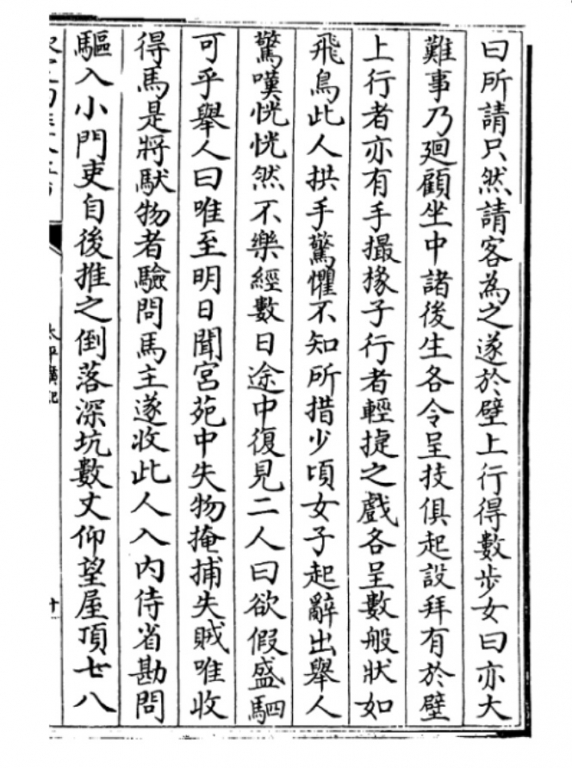 曰所請只然請客為之遂於壁上行得數步女曰亦大
難事乃廻顧坐中諸後生各令呈技俱起設拜有於壁
上行者亦有手撮椽子行者輕捷之戲各呈數般狀如
飛鳥此人拱手驚懼不知所措少頃女子起辭出舉人
驚嘆恍恍然不樂經數日途中復見二人曰欲假盛駟
可乎舉人曰唯至明日聞宮苑中失物掩捕失賊唯收
得馬是將馱物者驗問馬主遂收此人入内侍省勘問
驅入小門吏自後推之倒落深坑數丈仰望屋頂七八
太平廣記